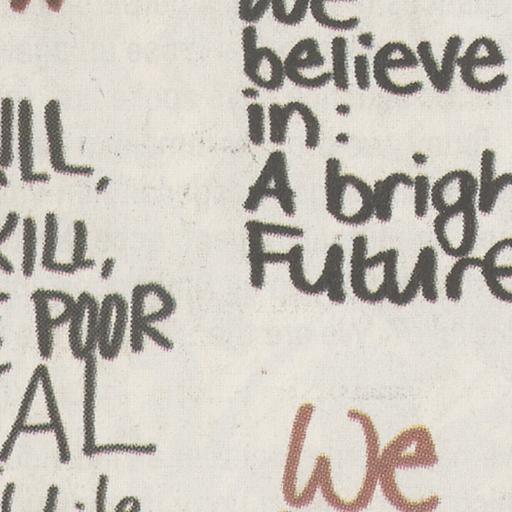 ILL,
KILL,
POOR
AL
We
believe
in:
A brigh
Future
We